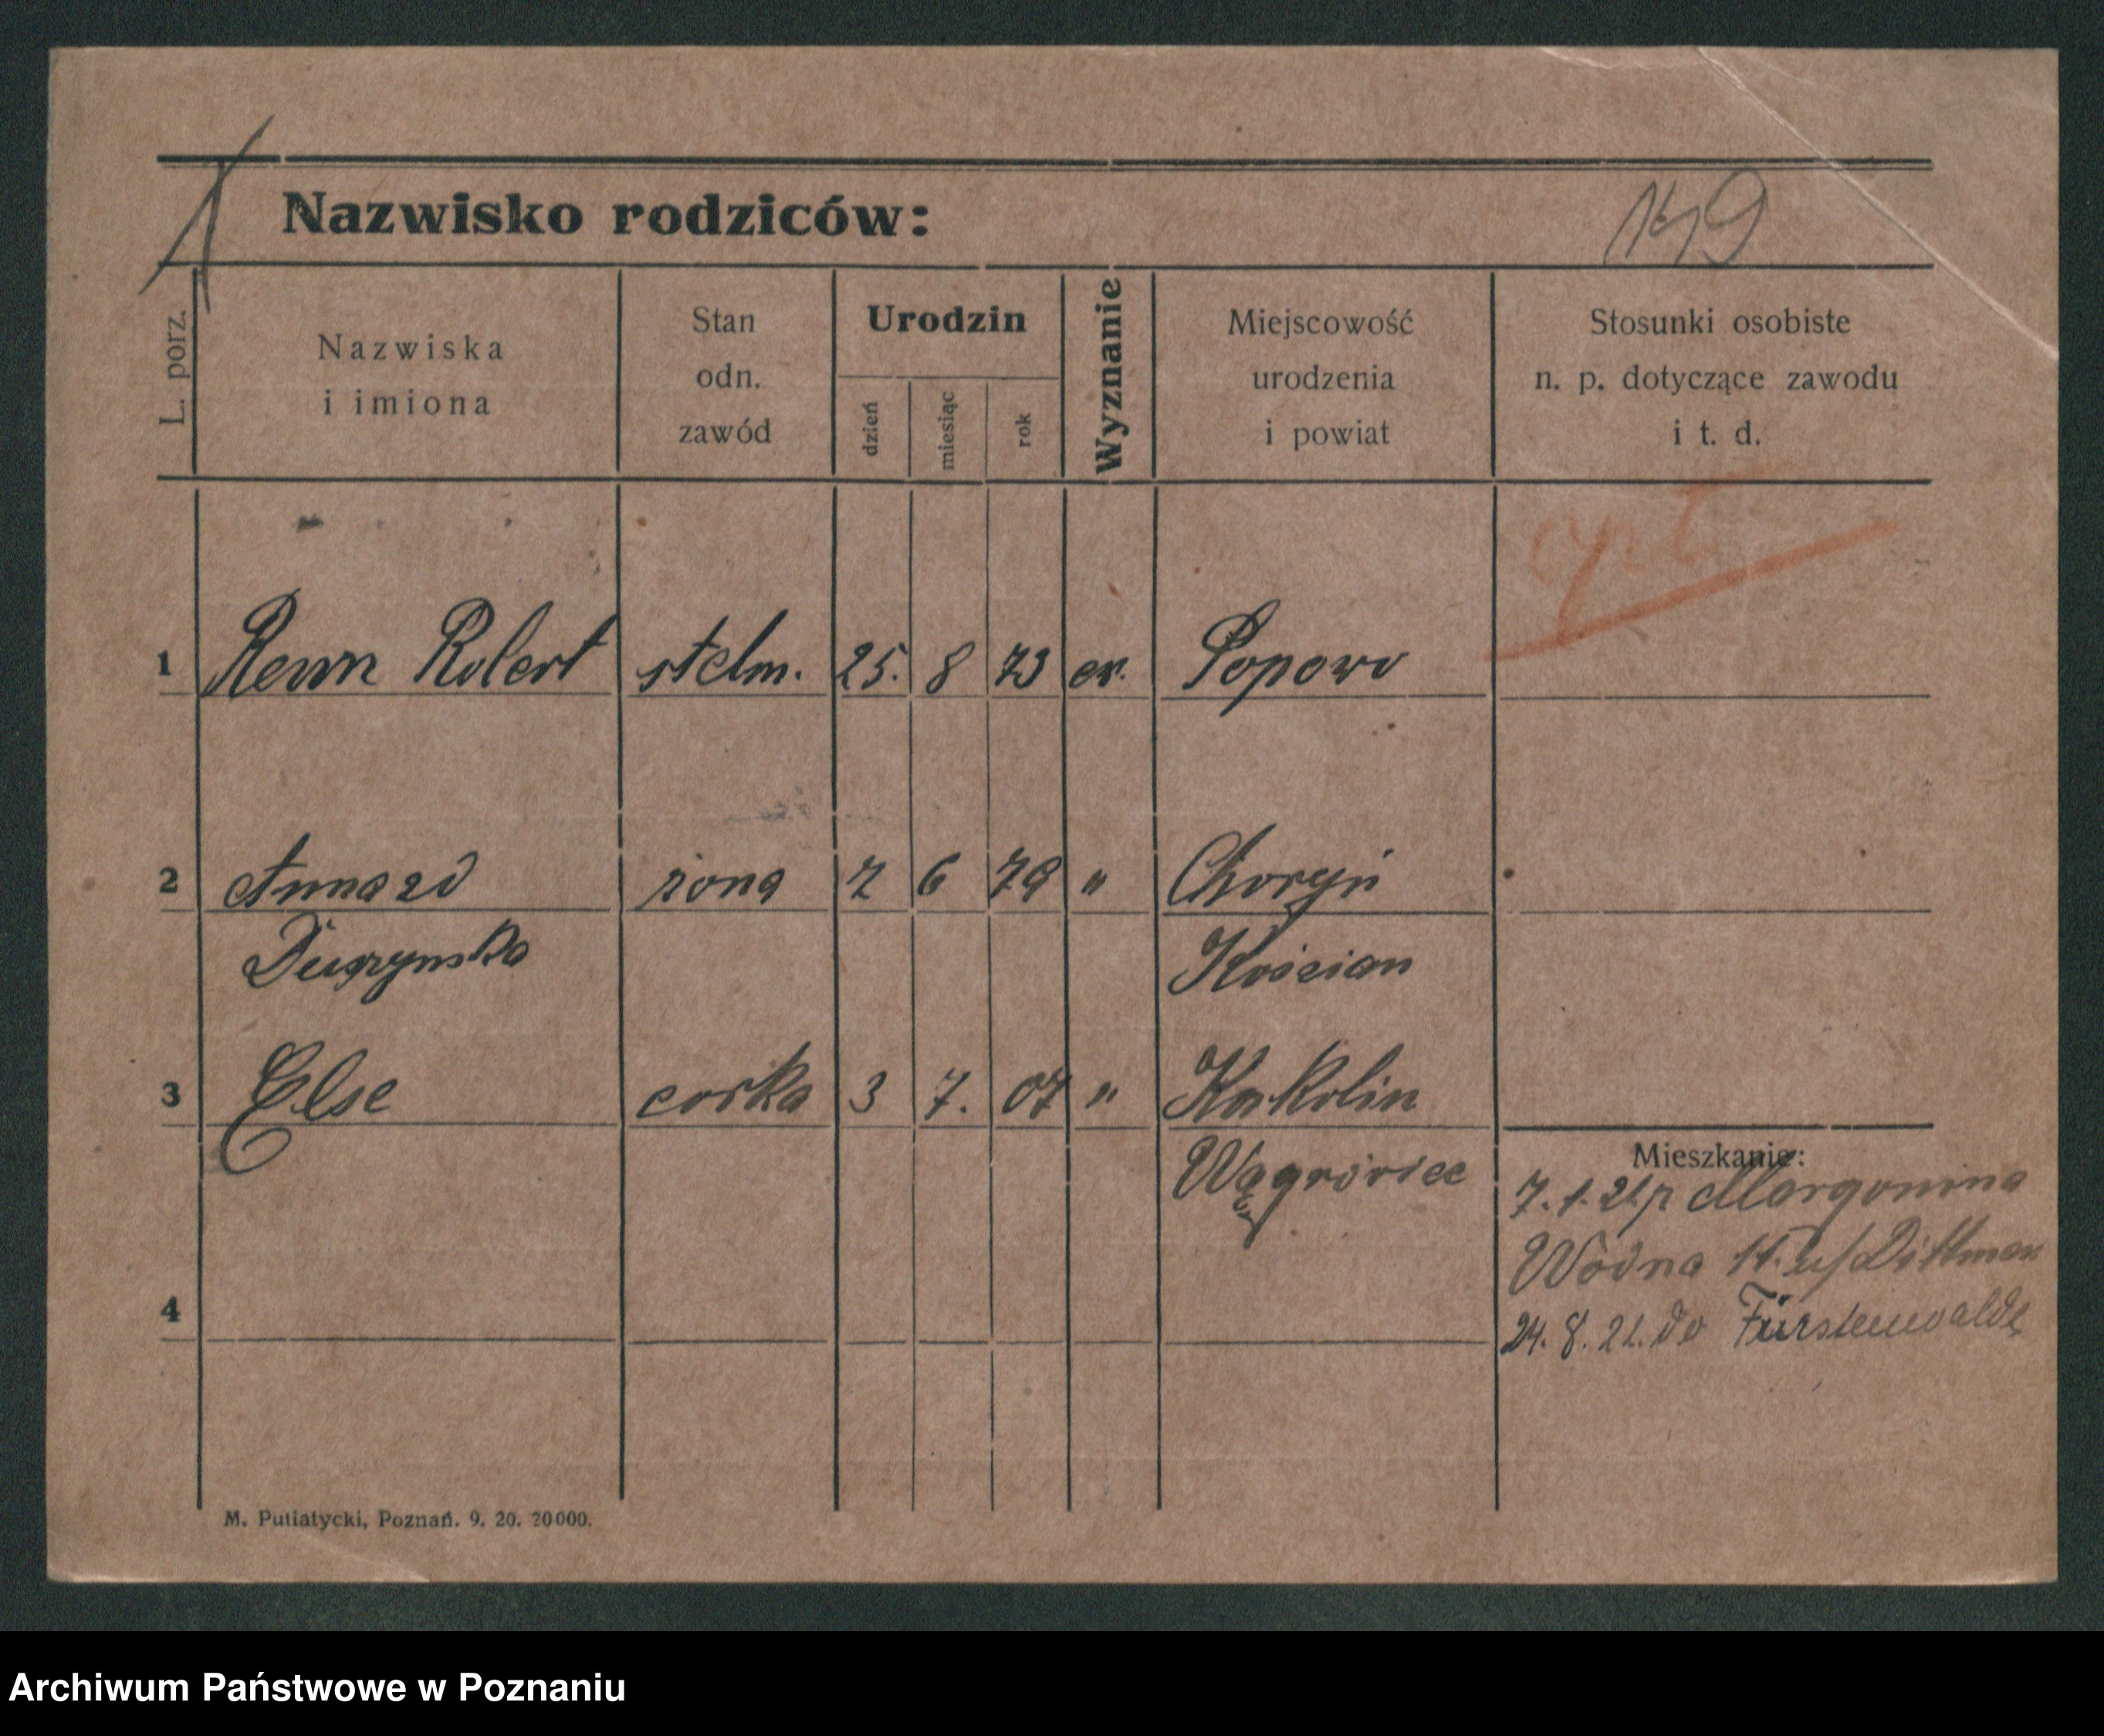 Nazwisko rodziców:
149
L. porz.
Nazwiska
i imiona
Stan
odn.
zawód
Urodzin
dzień
miesiąc
rok
Wyznanie
Miejscowość
urodzenia
i powiat
Stosunki osobiste
n. p. dotyczące zawodu
i t. d.
1 Renn Robert stelm. 25. 8 73 ew. Popowo
2 Anna zd żona 7 6 79 " Choryń
Duszynska Kościan
3 Else corka 3 7. 07 " Kakolin
Wągrówiec
Mieszkanie:
7. 1. 21 p Margonina
Wodna 11. u/Dittman
4
24. 8. 21. do Fürstenwalde
M. Putiatycki, Poznań. 9. 20. 20000.
Archiwum Państwowe w Poznaniu